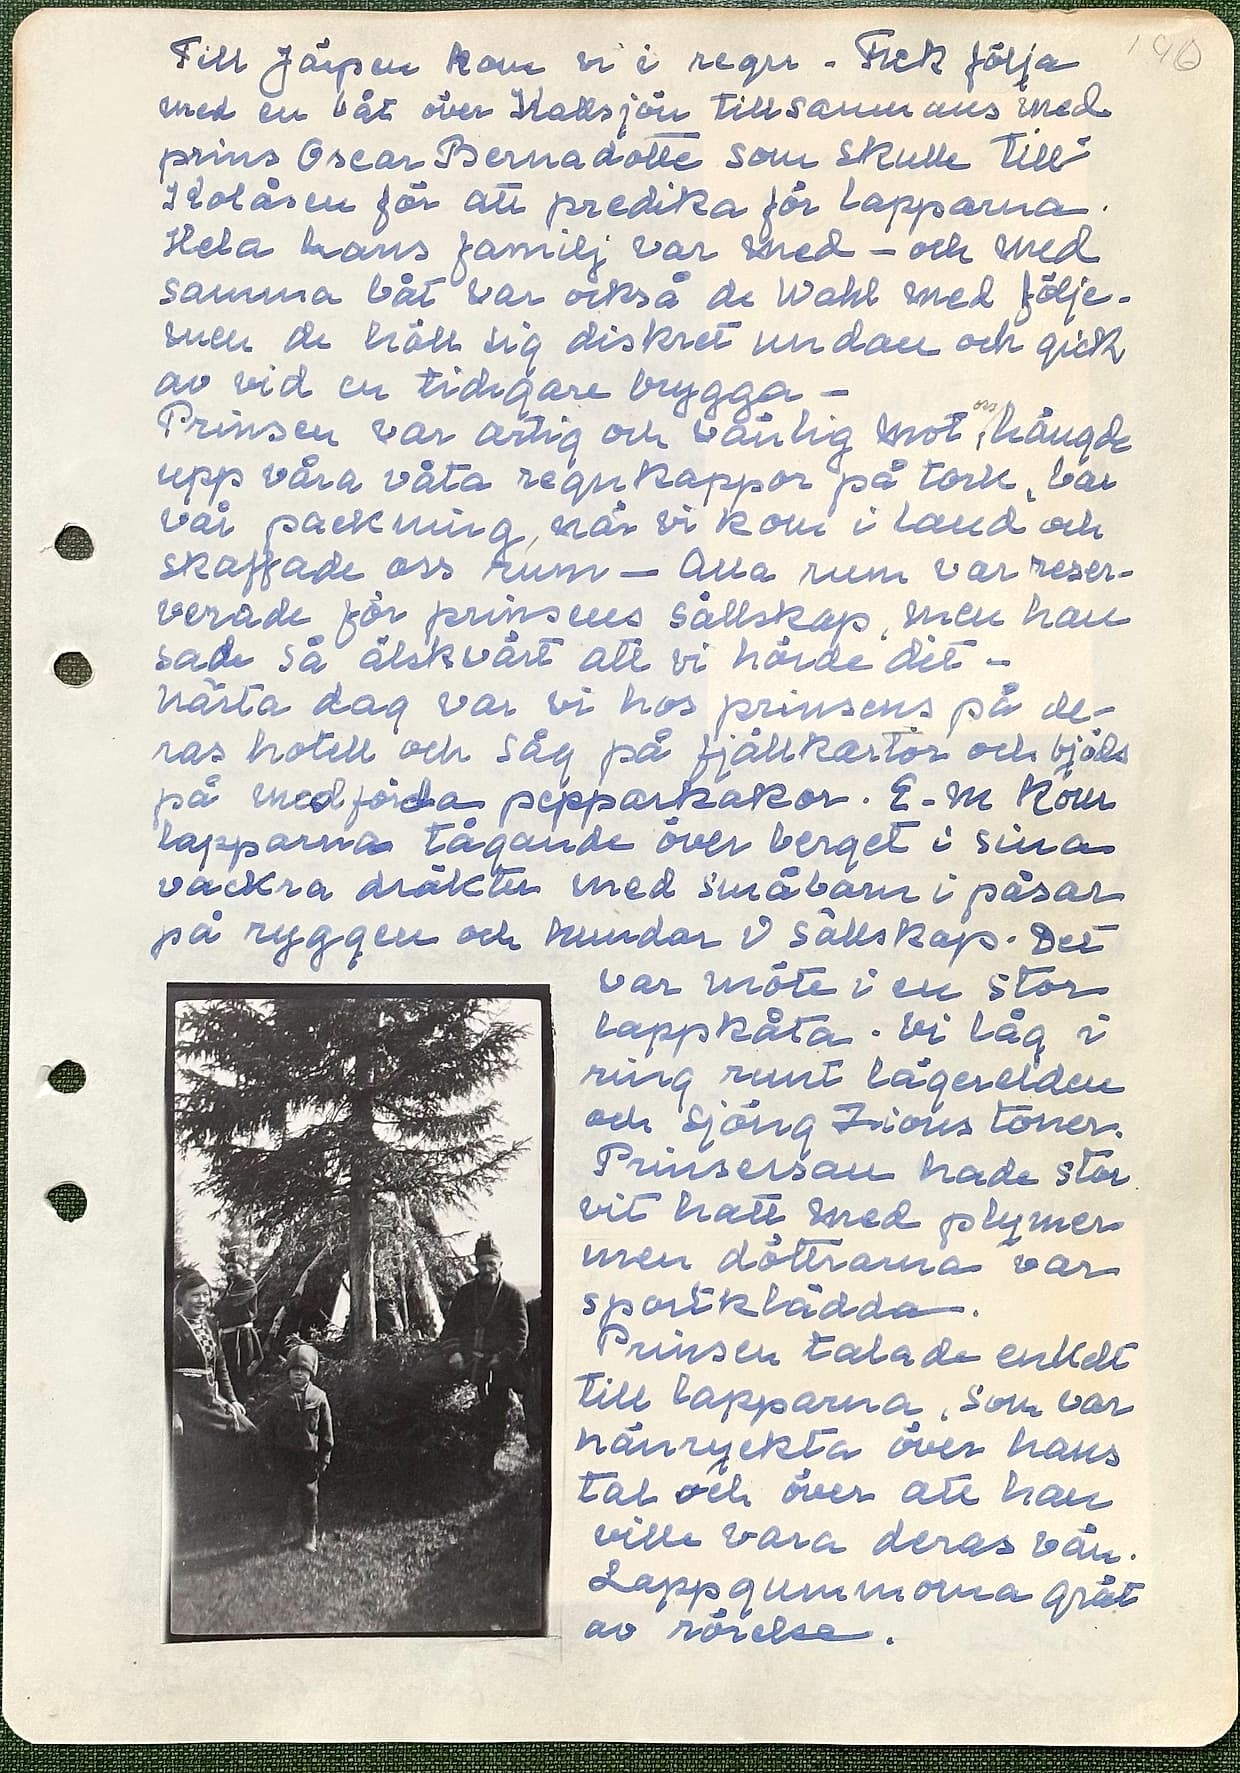 190
Till Järpen kom vi i regn - Fick följa
med en båt över Kallsjön tillsammans med
prins Oscar Bernadotte som skulle till
Kolåsen för att predika för lapparna.
Hela hans familj var med - och med
samma båt var också de Wahl med följe-
men de höll sig diskret undan och gick
av vid en tidigare brygga -
Prinsen var artig och vänlig mot oss, hängde
upp våra våta regnkappor på tork, bar
vår packning, när vi kom i land och
skaffade oss rum - Alla rum var reser-
verade för prinsens sällskap, men han
sade så älskvärt att vi hörde dit -
Nästa dag var vi hos prinsens på de-
ras hotell och såg på fjällkartor och bjöds
på medförda pepparkakor. E-m kom
lapparna tågande över berget i sina
vackra dräkter med småbarn i påsar
på ryggen och hundar i sällskap. Det
var möte i en stor
lappkåta. Vi låg i
ring runt lägerelden
och sjöng Zions toner.
Prinsessan hade stor
vit hatt med plymer
men döttrarna var
sportklädda.
Prinsen talade enkelt
till lapparna, som var
hänryckta över hans
tal och över att han
ville vara deras vän.
Lappgummorna grät
av rörelse.